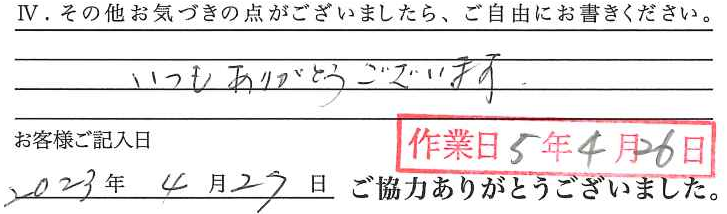 Ⅳ．その他お気づきの点がございましたら、ご自由にお書きください。
いつもありがとうございます.
お客様ご記入日
作業日5年4月26日
2023年 4月27日 ご協力ありがとうございました。